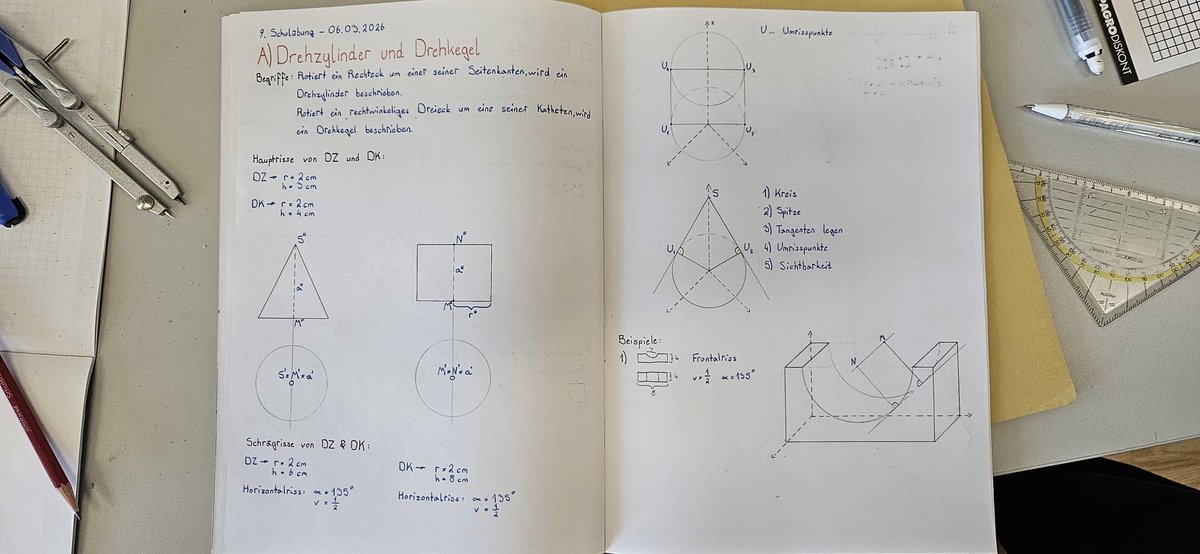 9. Schulübung - 06.03.2026
A) Drehzylinder und Drehkegel
Begriffe: Rotiert ein Rechteck um einer seiner Seitenkanten, wird ein
Drehzylinder beschrieben.
Rotiert ein rechtwinkeliges Dreieck um eins seiner Katheten, wird
ein Drehkegel beschrieben.
Hauptrisse von DZ und DK:
DZ → r = 2 cm
h = 3 cm
DK → r = 2 cm
h = 4 cm
S"
a"
M"
N"
a"
M"
r"
S'=M'=a'
M'=N'=a'
Schrägrisse von DZ & DK:
DZ → r = 2 cm
h = 6 cm
Horizontalriss: α = 135°
v = 1/2
DK → r = 2 cm
h = 8 cm
Horizontalriss: α = 135°
v = 1/2
U... Umrisspunkte
z
U₄
U₃
U₁
U₂
S
U₁
U₂
1) Kreis
2) Spitze
3) Tangenten legen
4) Umrisspunkte
5) Sichtbarkeit
Beispiele:
1)
4
4
8
Frontalriss
v = 1/2 α = 135°
N
M
PAGRO DISKONT